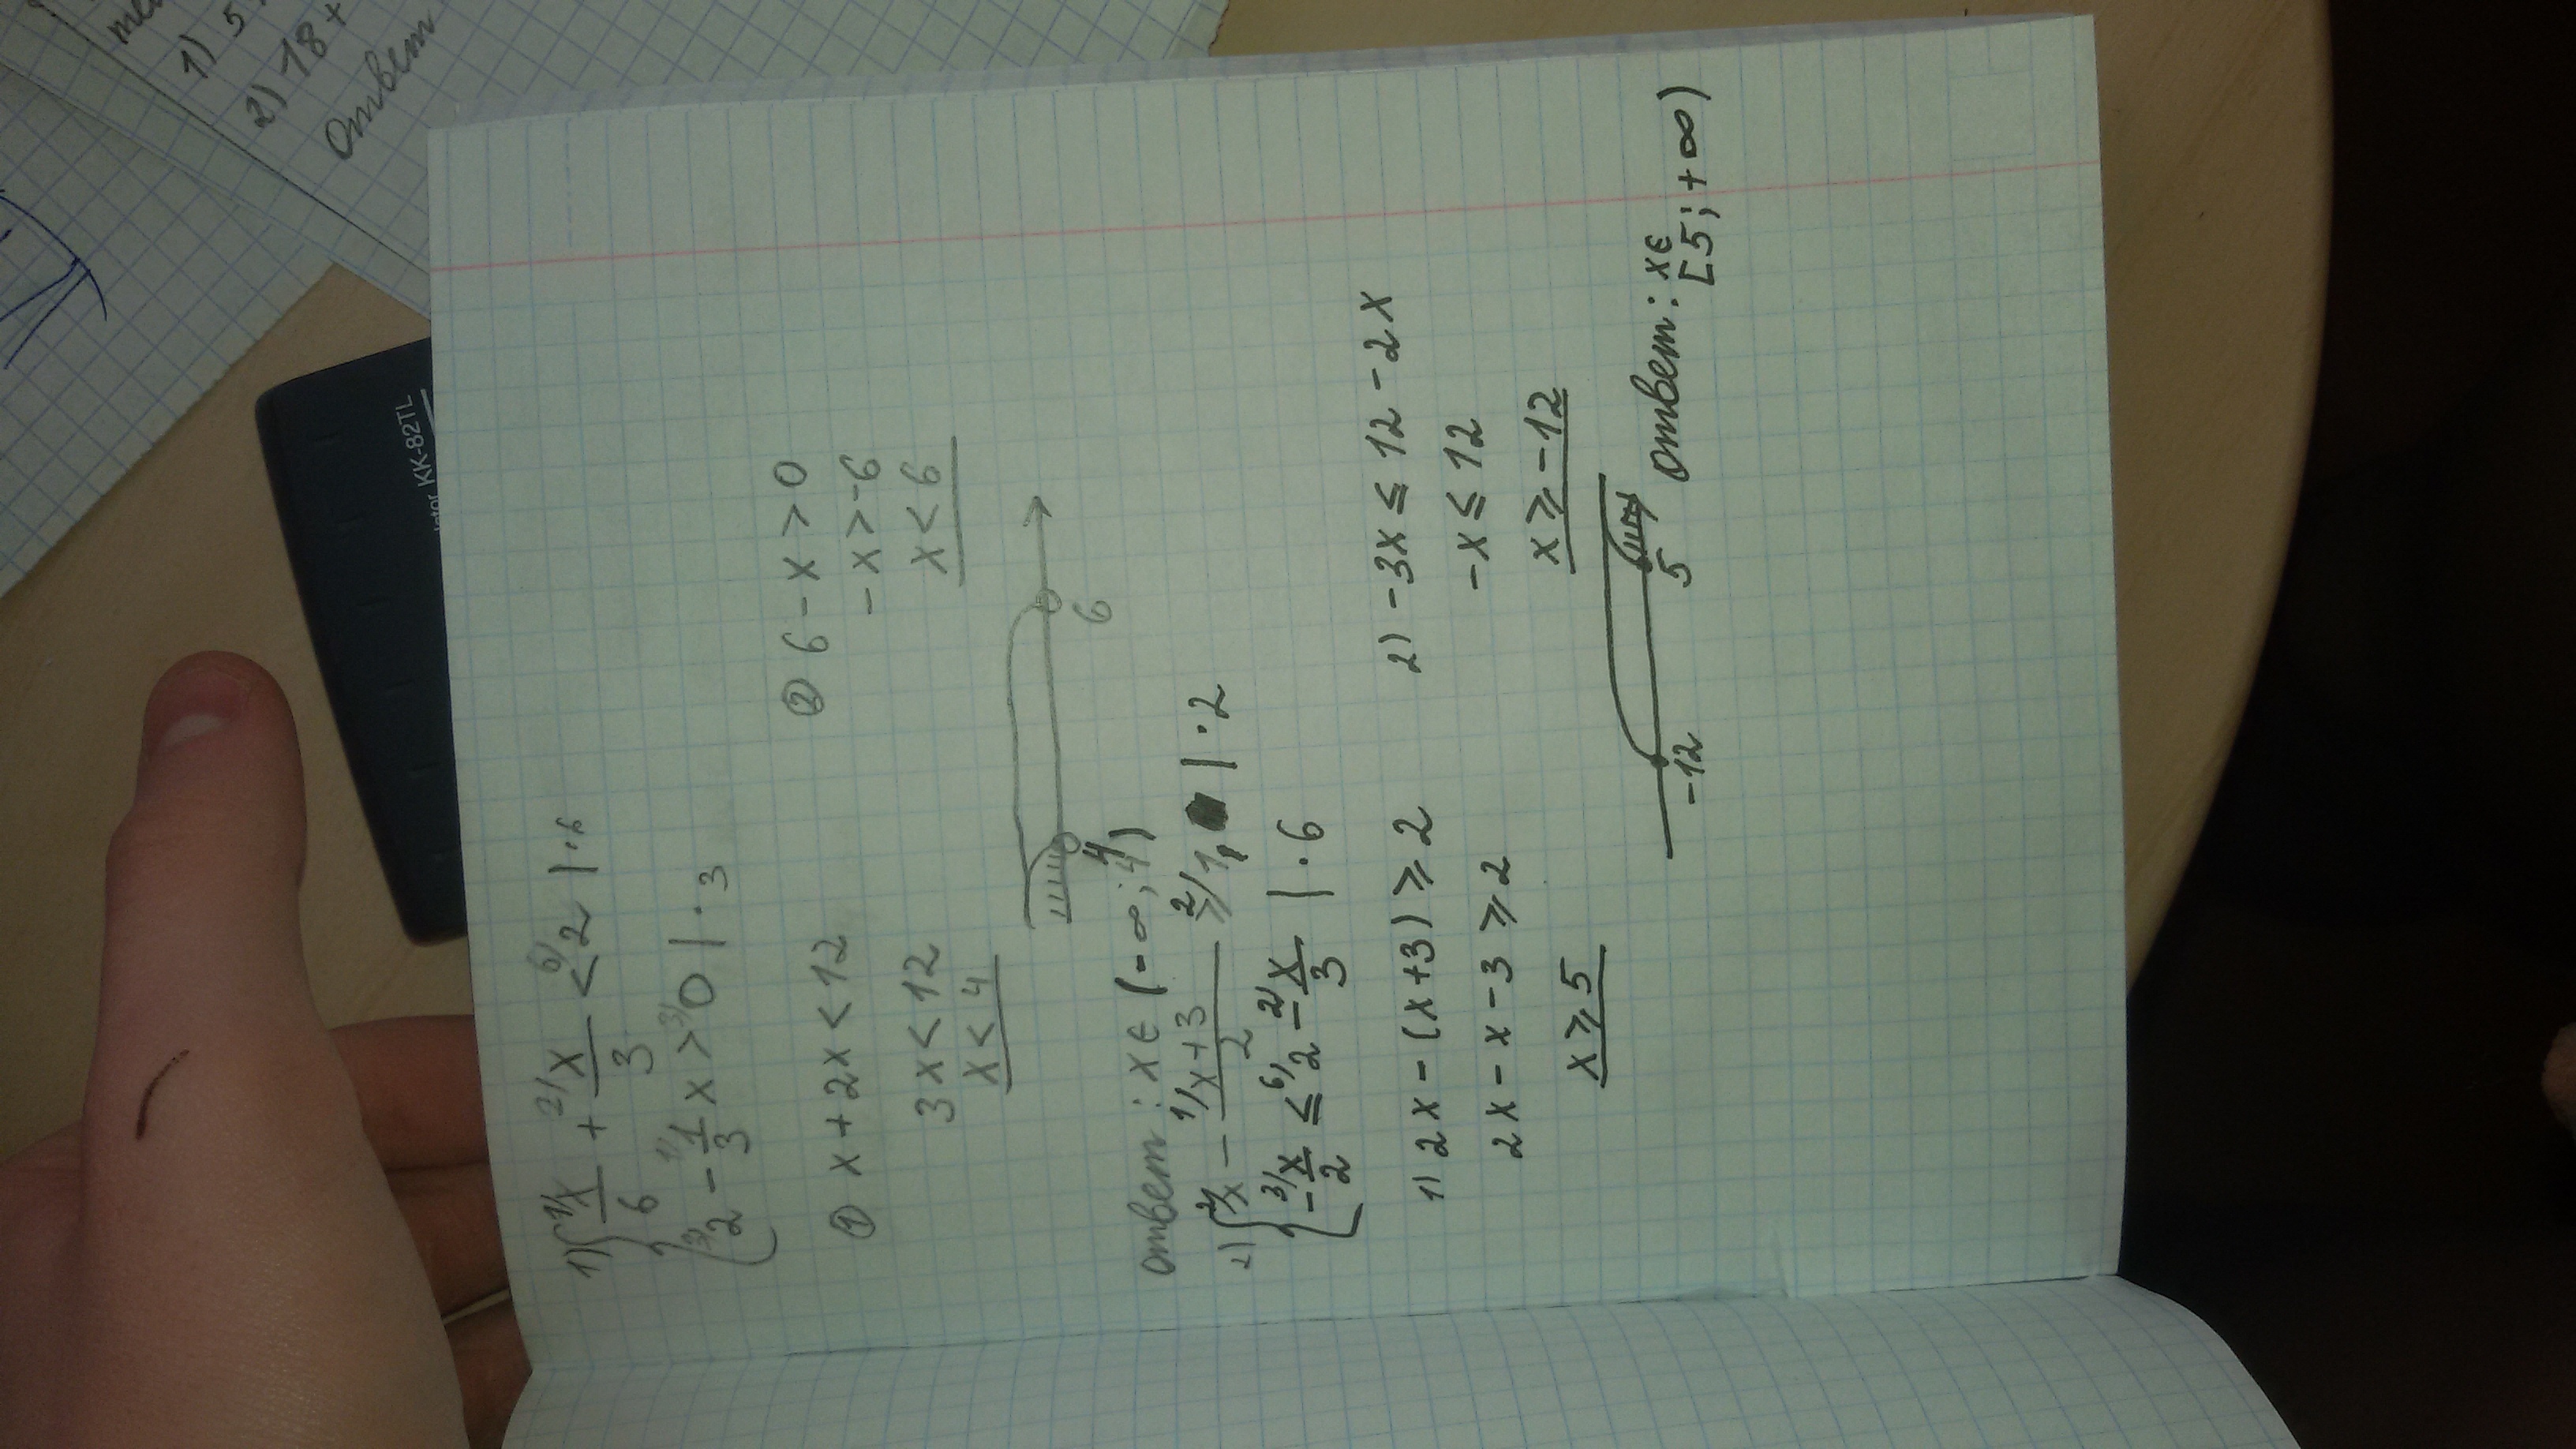 1) { ¹⁄x/6 + ²⁄x/3 < ⁶⁄2 | · 6
{ ³⁄2 - ¹⁄1/3 x > ³⁄0 | · 3
① x + 2x < 12
3x < 12
x < 4
② 6 - x > 0
-x > -6
x < 6
4 6
Ответ: x ∈ (-∞; 4)
2) { ²⁄x - ¹⁄x+3/2 ⩾ ²⁄1, | · 2
{ - ³⁄x/2 ≤ ⁶⁄2 - ²⁄x/3 | · 6
1) 2x - (x+3) ⩾ 2
2x - x - 3 ⩾ 2
x ⩾ 5
2) -3x ≤ 12 - 2x
-x ≤ 12
x ⩾ -12
-12 5
Ответ: x∈
[5; +∞)
1) 5
2) 18 +
Ответ
KK-82TL